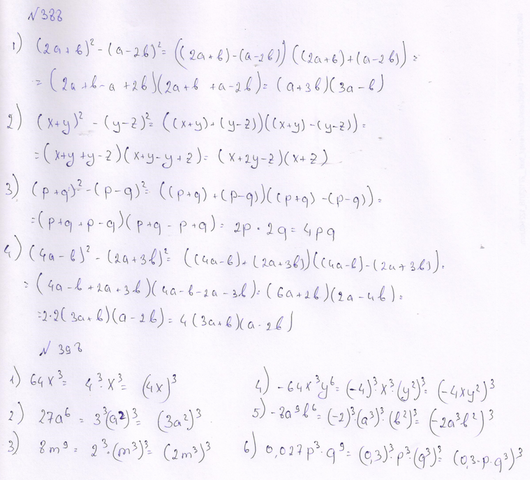 N 388
1) (2a+b)² - (a-2b)² = ((2a+b)-(a-2b)) ((2a+b)+(a-2b)) =
= (2a+b-a+2b)(2a+b+a-2b) = (a+3b)(3a-b)
2) (x+y)² - (y-z)² = ((x+y)+(y-z))((x+y)-(y-z)) =
= (x+y+y-z)(x+y-y+z) = (x+2y-z)(x+z)
3) (p+q)² - (p-q)² = ((p+q)+(p-q))((p+q)-(p-q)) =
= (p+q+p-q)(p+q-p+q) = 2p · 2q = 4pq
4) (4a-b)² - (2a+3b)² = ((4a-b)+(2a+3b))((4a-b)-(2a+3b)) =
= (4a-b+2a+3b)(4a-b-2a-3b) = (6a+2b)(2a-4b) =
= 2·2(3a+b)(a-2b) = 4(3a+b)(a-2b)
N 398
1) 64x³ = 4³·x³ = (4x)³
2) 27a⁶ = 3³(a²)³ = (3a²)³
3) 8m⁹ = 2³·(m³)³ = (2m³)³
4) -64x³y⁶ = (-4)³·x³(y²)³ = (-4xy²)³
5) -8a⁹b⁶ = (-2)³(a³)³(b²)³ = (-2a³b²)³
6) 0,027p³·q⁹ = (0,3)³·p³(q³)³ = (0,3·p·q³)³